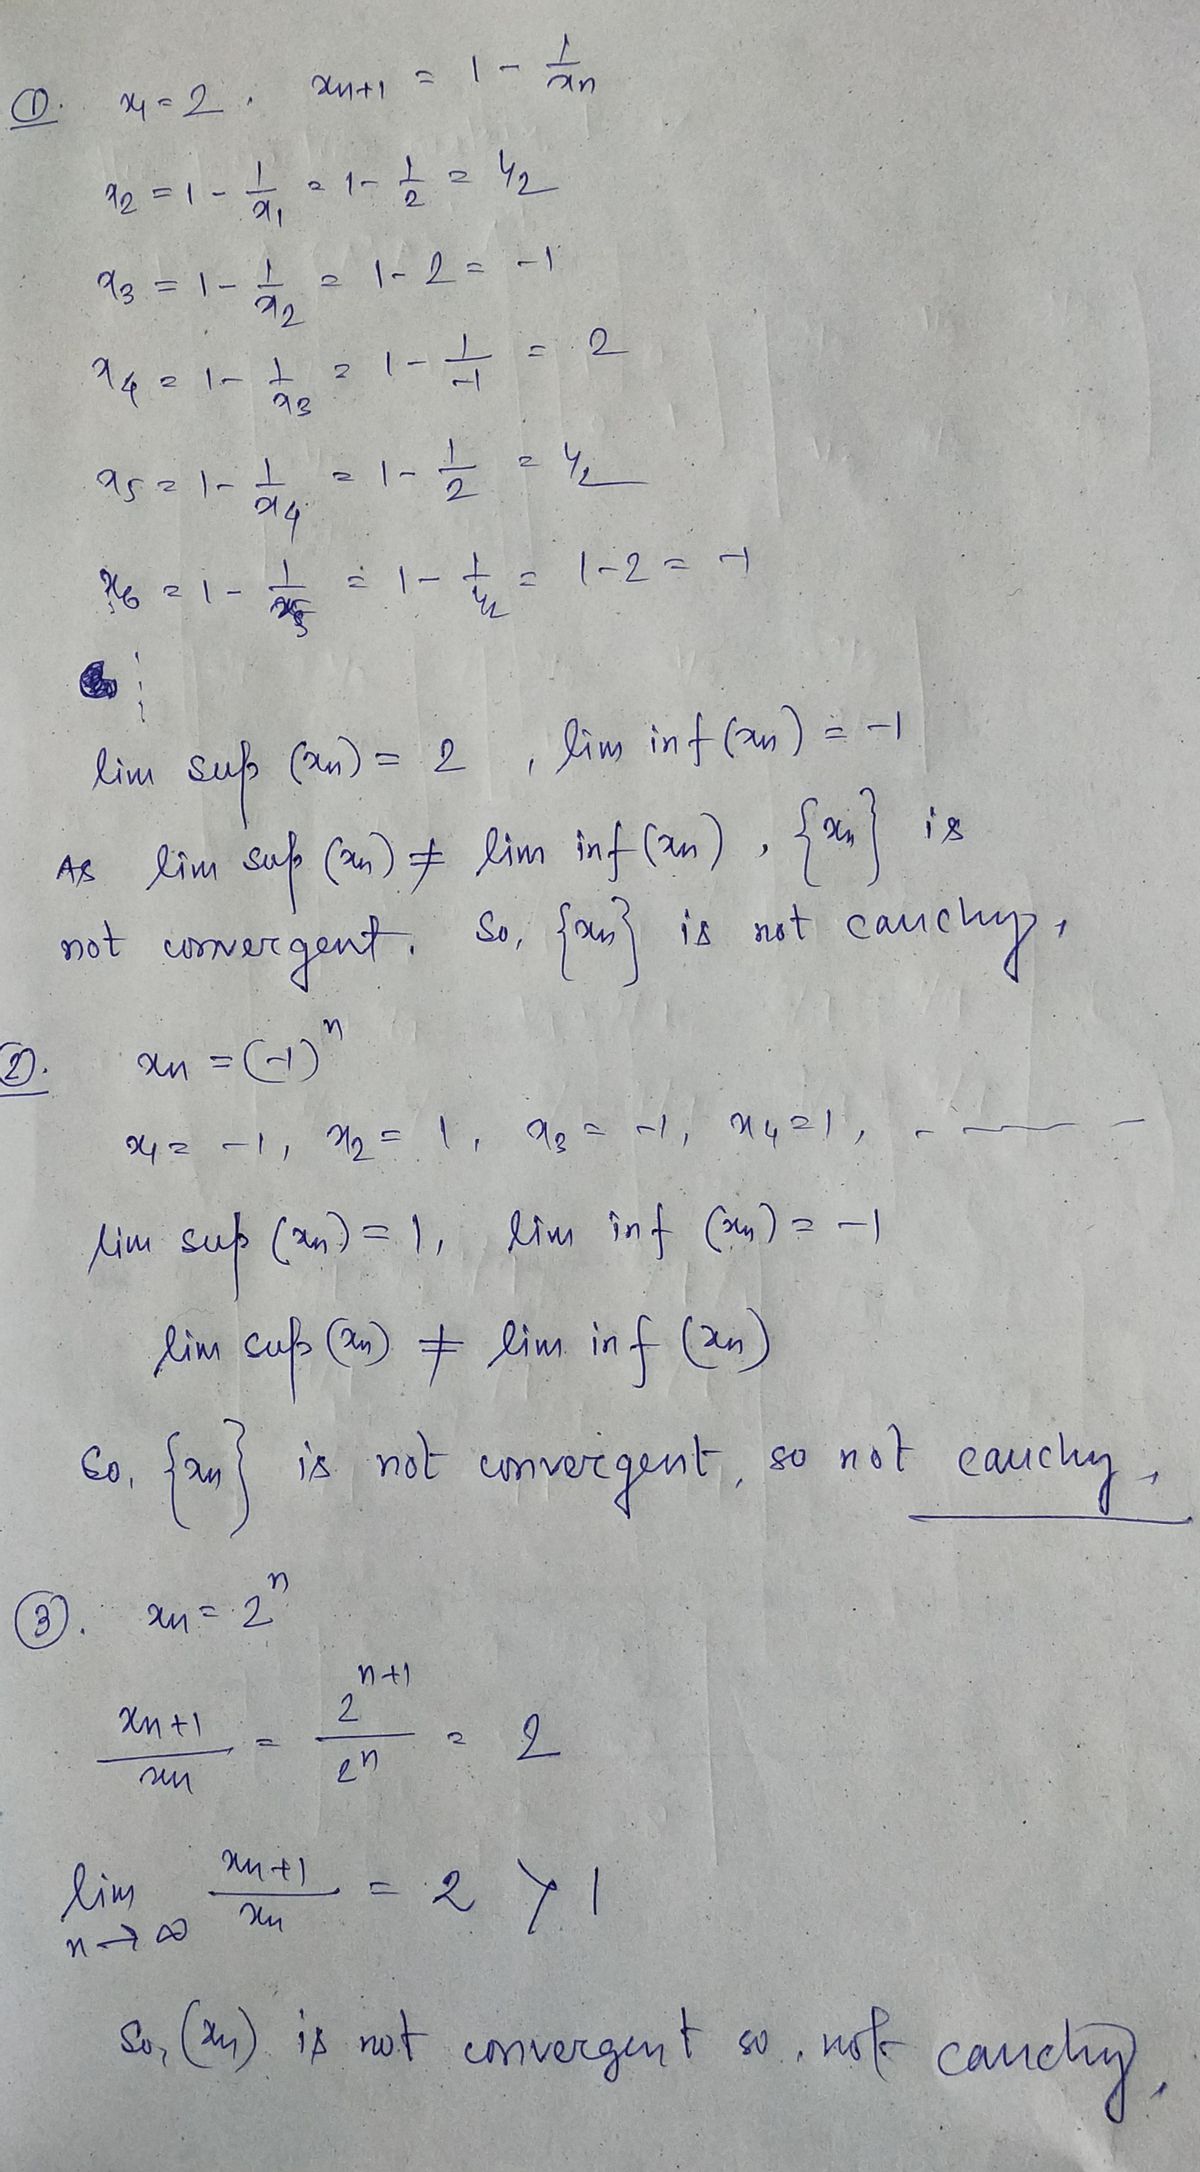 ①. x₁ = 2 , xₙ₊₁ = 1 - 1/xₙ
x₂ = 1 - 1/x₁ = 1 - 1/2 = 1/2
x₃ = 1 - 1/x₂ = 1 - 2 = -1
x₄ = 1 - 1/x₃ = 1 - 1/-1 = 2
x₅ = 1 - 1/x₄ = 1 - 1/2 = 1/2
x₆ = 1 - 1/x₅ = 1 - 1/1/2 = 1 - 2 = -1
⋮
lim sup (xₙ) = 2 , lim inf (xₙ) = -1
As lim sup (xₙ) ≠ lim inf (xₙ) , {xₙ} is
not convergent. So, {xₙ} is not cauchy.
②. xₙ = (-1)ⁿ
x₁ = -1, x₂ = 1, x₃ = -1, x₄ = 1, - — — -
lim sup (xₙ) = 1, lim inf (xₙ) = -1
lim sup (xₙ) ≠ lim inf (xₙ)
So, {xₙ} is not convergent, so not cauchy.
③. xₙ = 2ⁿ
xₙ₊₁/xₙ = 2ⁿ⁺¹/2ⁿ = 2
lim n→∞ xₙ₊₁/xₙ = 2 > 1
So, (xₙ) is not convergent so, not cauchy.